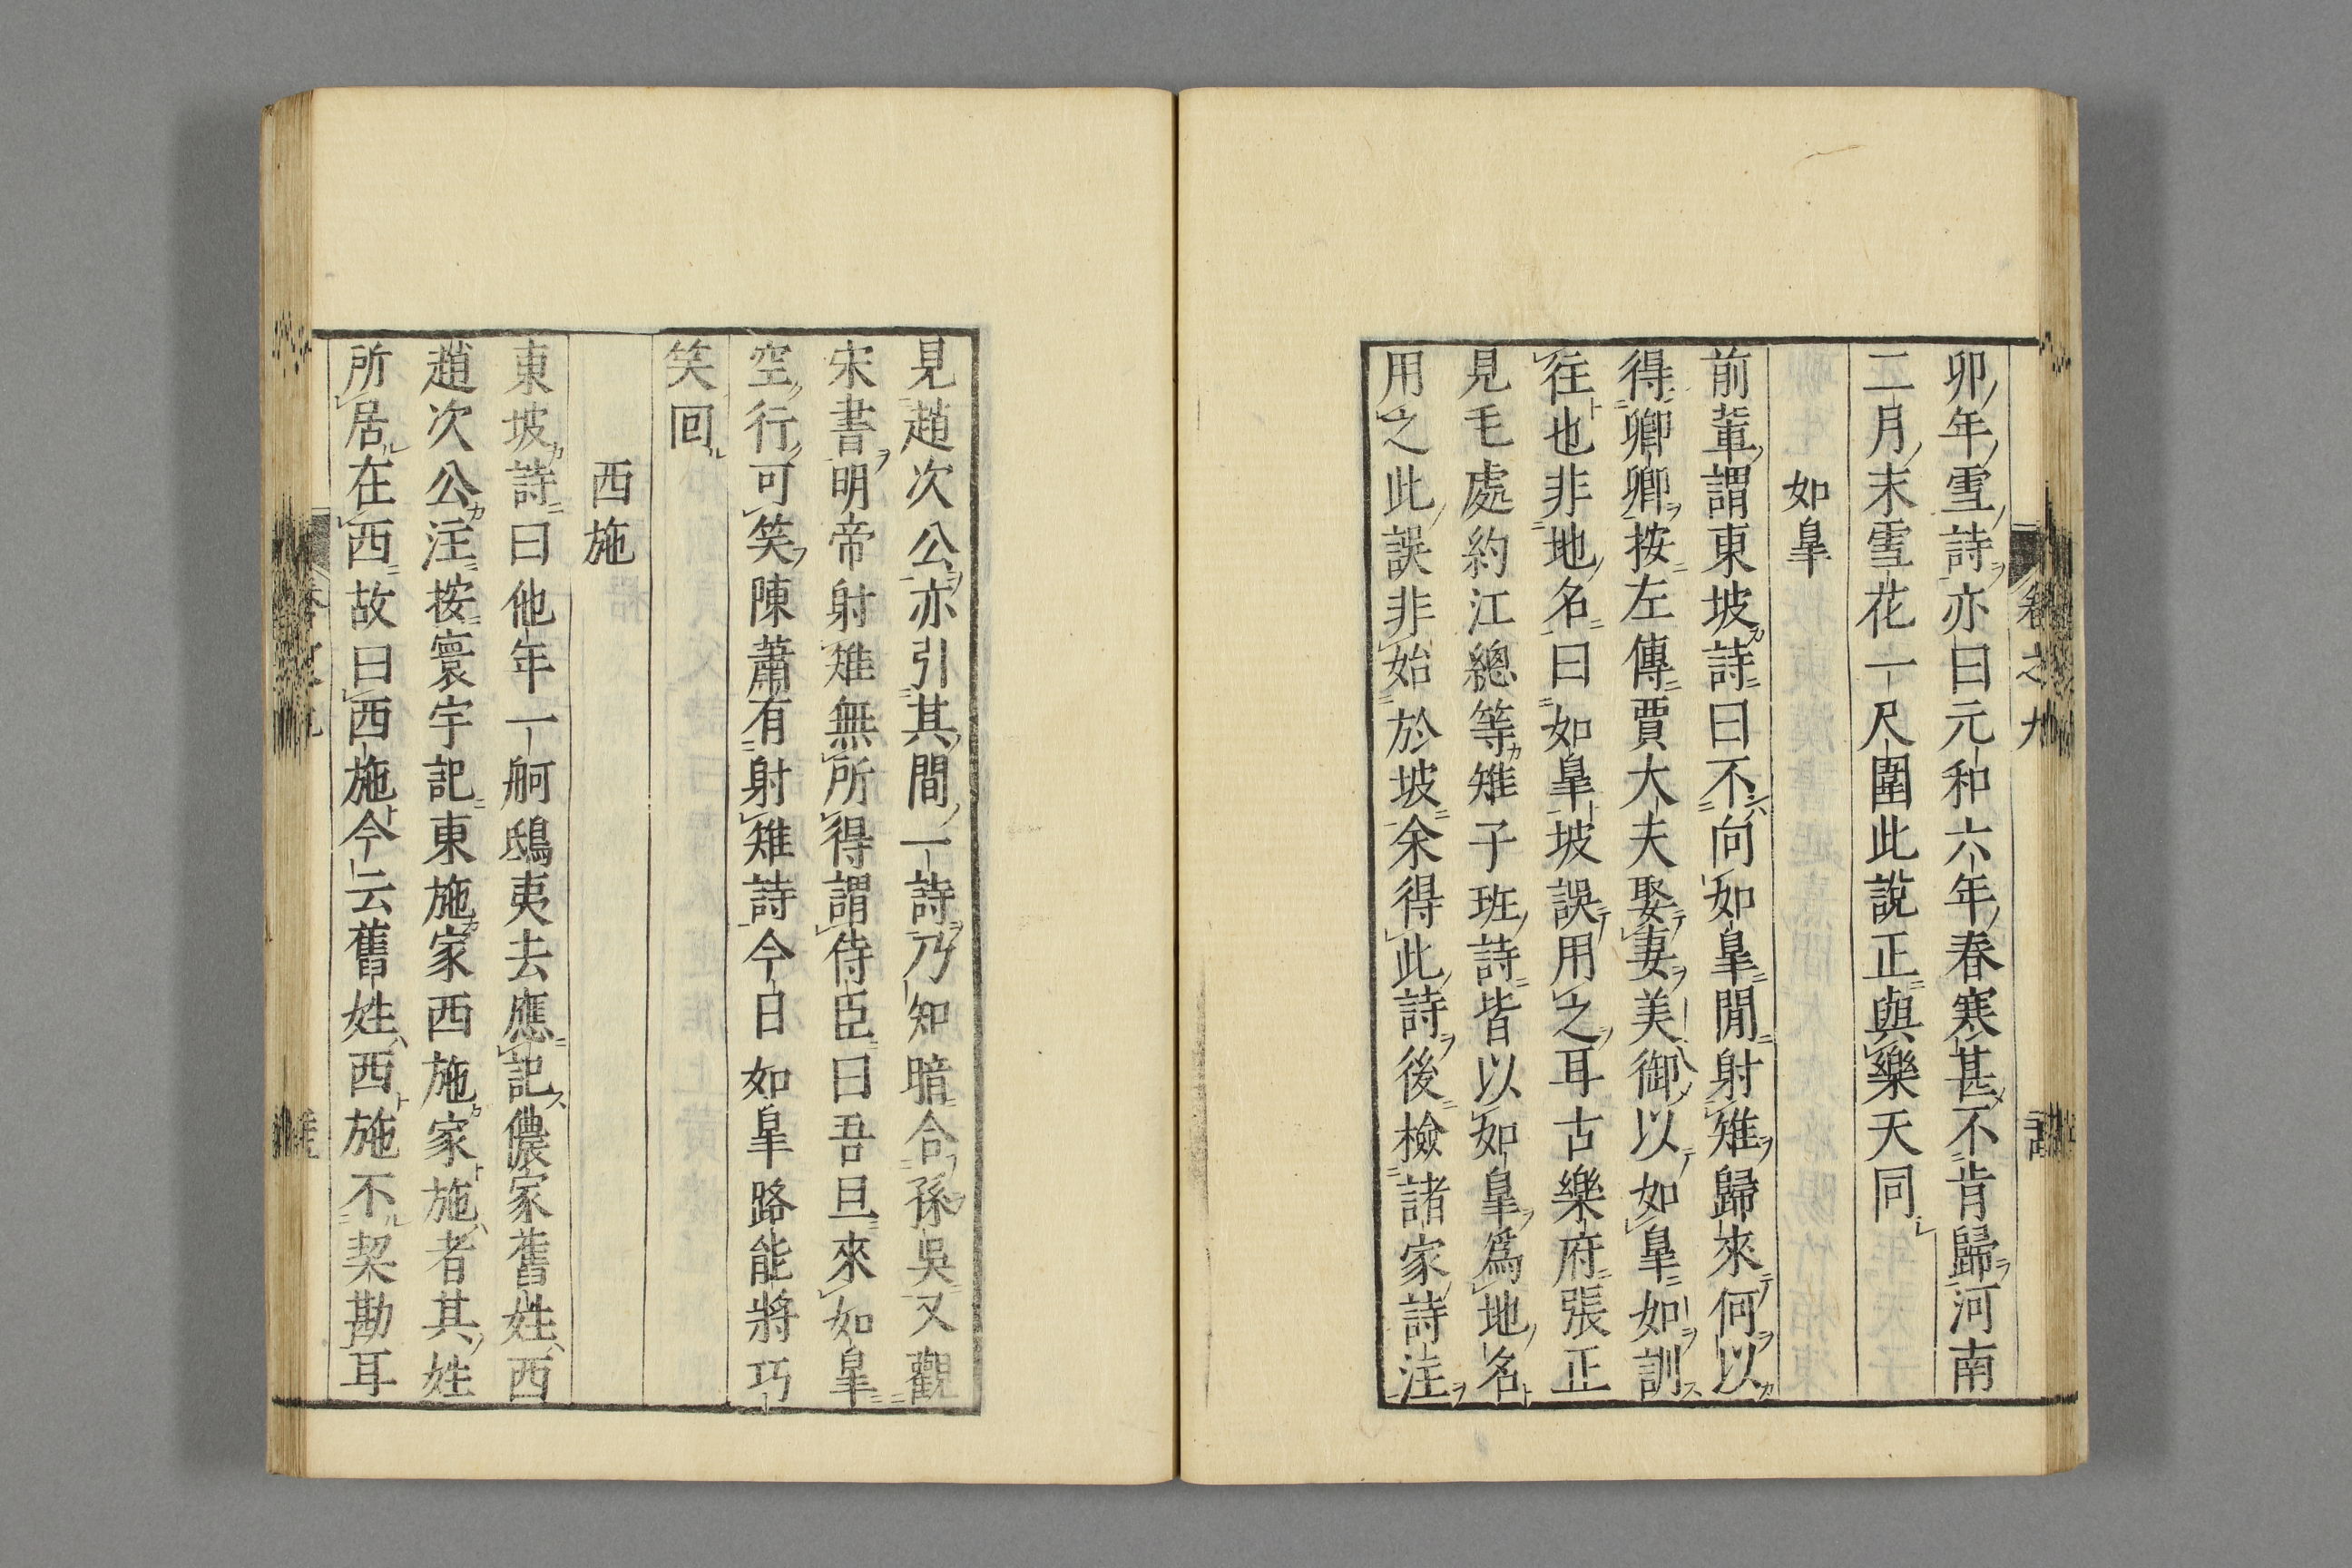 卯年雪詩亦曰元和六年春寒甚不肯歸河南
二月末雪花一尺圍此說正與樂天同
如皐
前輩謂東坡詩曰不向如皐閒射雉歸來何以
得卿卿按左傳賈大夫娶妻美御以如皐如訓
往也非地名曰如皐坡誤用之耳古樂府張正
見毛處約江總等雉子班詩皆以如皐爲地名
用之此誤非始於坡余得此詩後檢諸家詩注
見趙次公亦引其間一詩乃知暗合孫吳又觀
宋書明帝射雉無所得謂侍臣曰吾旦來如皐
空行可笑陳蕭有射雉詩今日如皐路能將巧
笑回
西施
東坡詩曰他年一舸鴟夷去應記儂家舊姓西
趙次公注按寰宇記東施家西施家施者其姓
所居在西故曰西施今云舊姓西施不契勘耳
卷之九